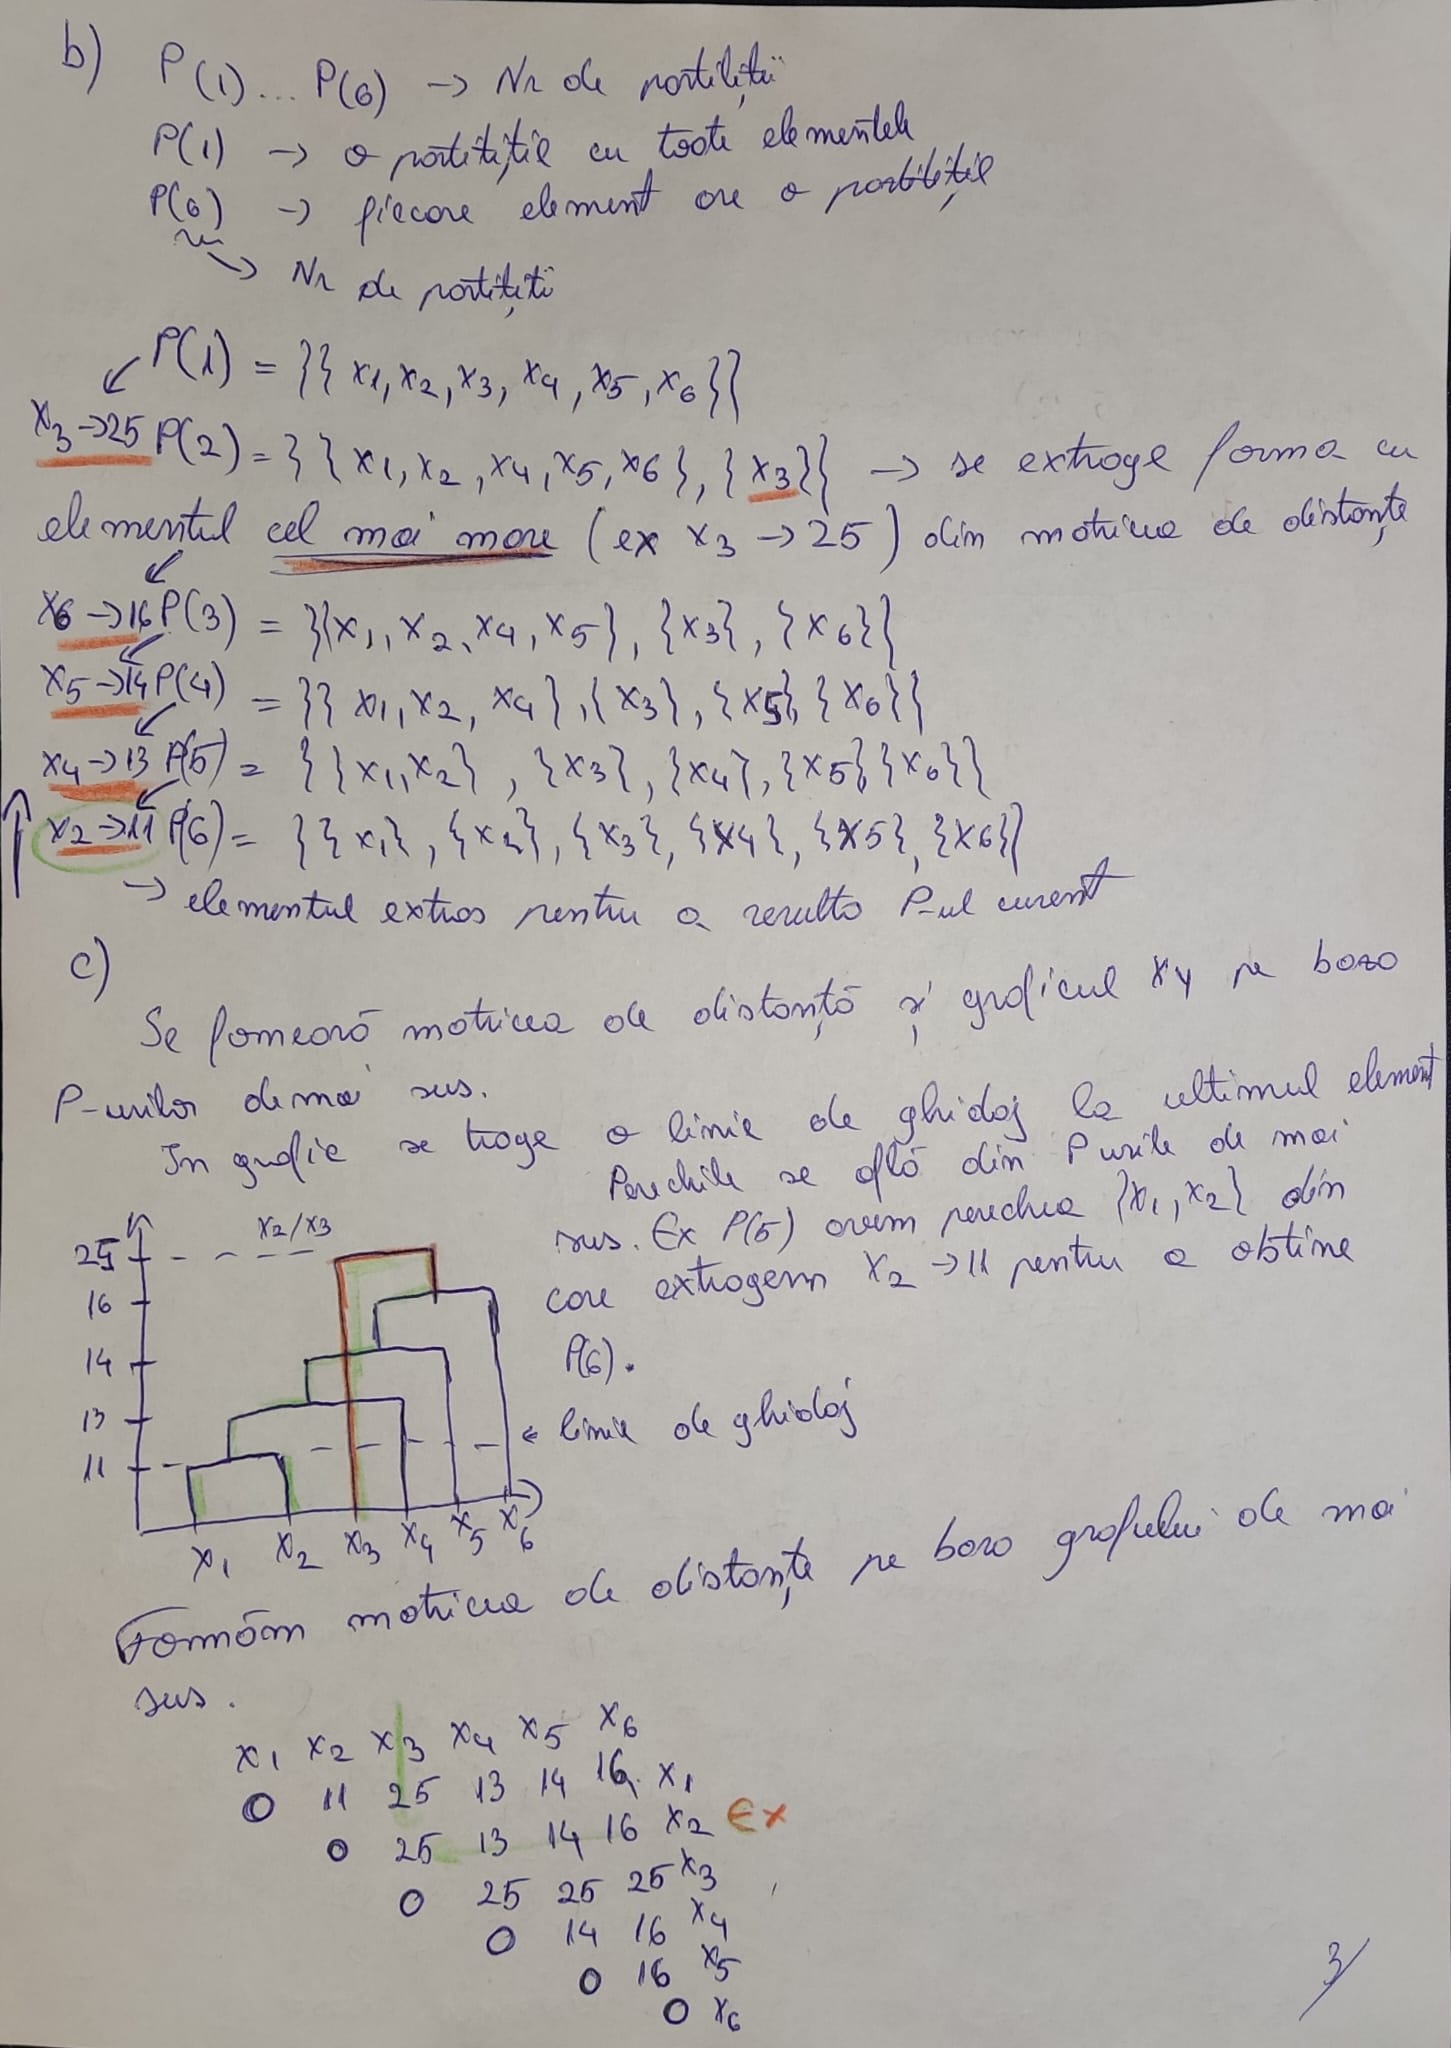 b) P(1)...P(6) -> Nr de partitiții
P(1) -> o partitiție cu toate elementele
P(6) -> fiecare element are o partitiție
-> Nr de partitiți
P(1) = {{x1, x2, x3, x4, x5, x6}}
x3->25 P(2) = {{x1, x2, x4, x5, x6}, {x3}} -> se extrage forma cu
elementul cel mai mare (ex x3 -> 25) din matricea de distanțe
x6->16 P(3) = {{x1, x2, x4, x5}, {x3}, {x6}}
x5->14 P(4) = {{x1, x2, x4}, {x3}, {x5}, {x6}}
x4->13 P(5) = {{x1, x2}, {x3}, {x4}, {x5} {x6}}
x2->11 P(6) = {{x1}, {x2}, {x3}, {x4}, {x5}, {x6}}
-> elementul extras pentru a rezulta P-ul curent
c)
Se fomează matricea de distanță și graficul xy pe baza
P-urilor de mai sus.
In grafic se trage o linie de ghidaj la ultimul element
Perechile se află din P urile de mai
sus. Ex P(5) avem perechea {x1, x2} din
care extragem x2 -> 11 pentru a obtine
P(6).
<- linie de ghidaj
25 x2/x3
16
14
13
11
x1 x2 x3 x4 x5 x6
Formăm matricea de distanțe pe baza grafului de mai
sus.
x1 x2 x3 x4 x5 x6
0 11 25 13 14 16 x1
0 25 13 14 16 x2 Ex
0 25 25 25 x3
0 14 16 x4
0 16 x5
0 x6
3/